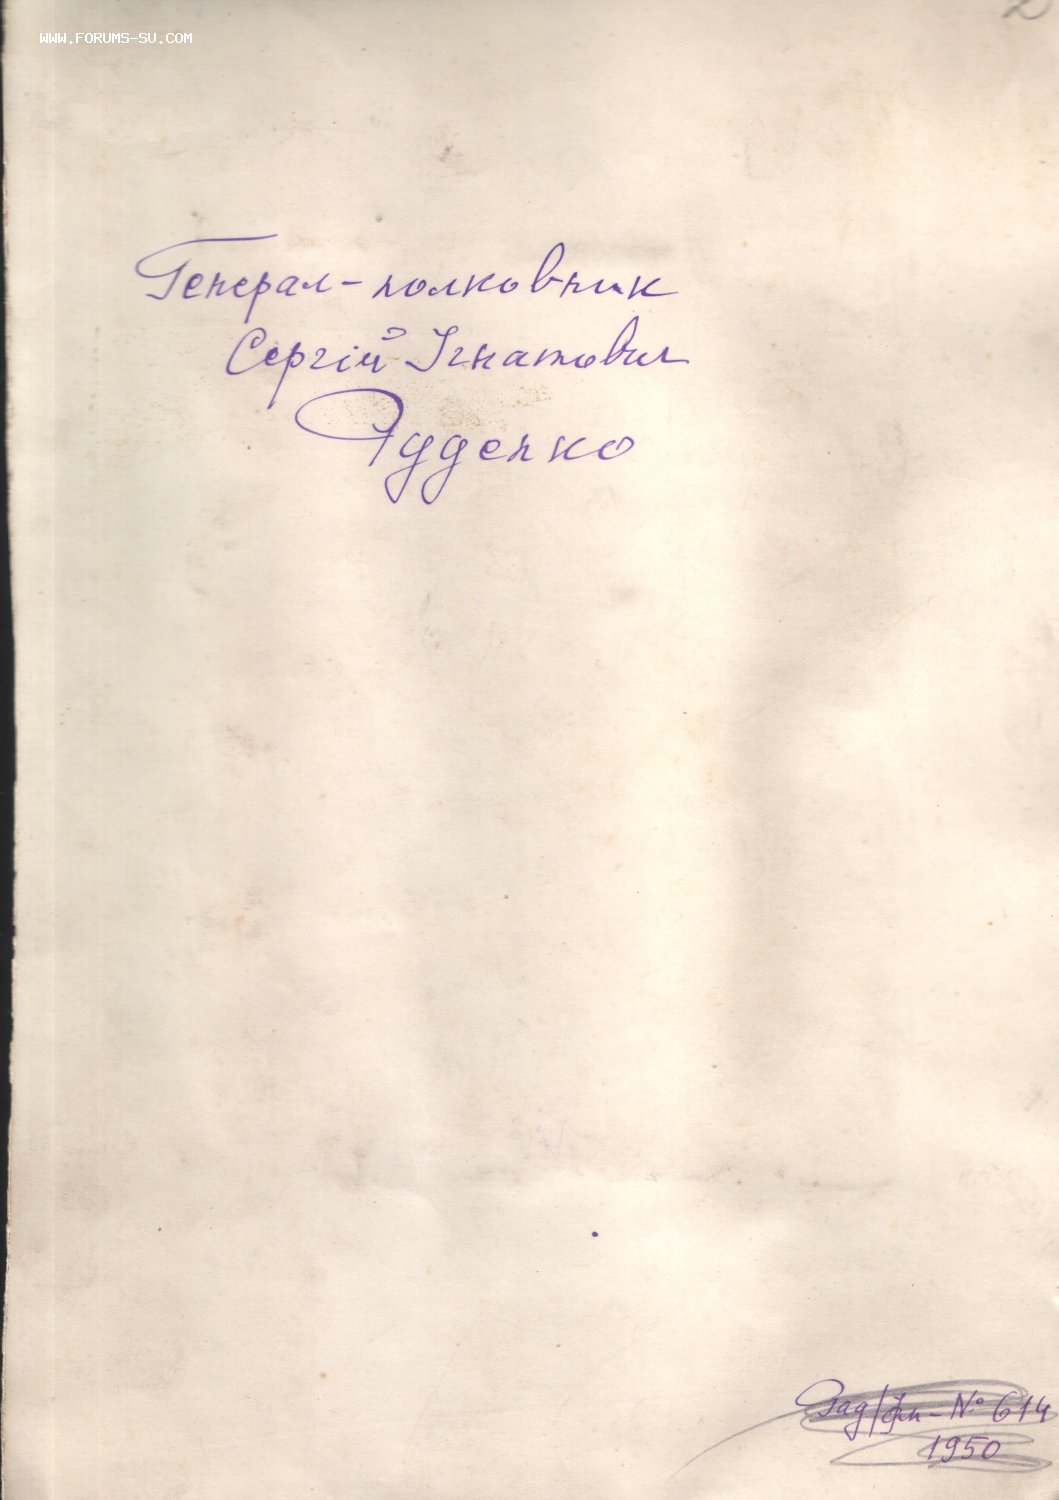 WWW.FORUMS-SU.COM
Генерал-полковник
Сергій Ігнатович
Руденко
№ 614
1950